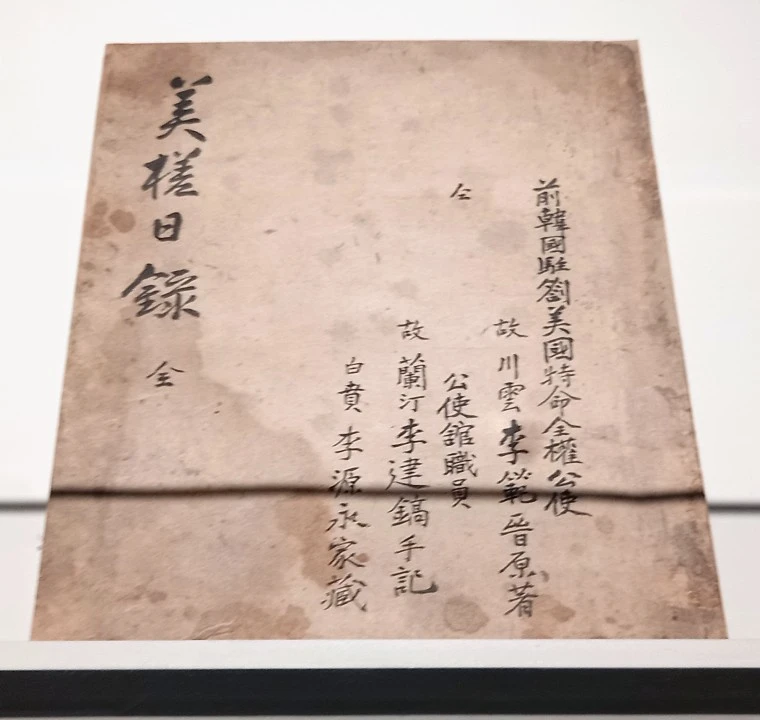 前韓國駐劄美國特命全權公使
故 川雲 李範晉 原著
仝 公使館職員
故 蘭汀 李建鎬 手記
白賁 李源永 家藏
美槎日錄 全